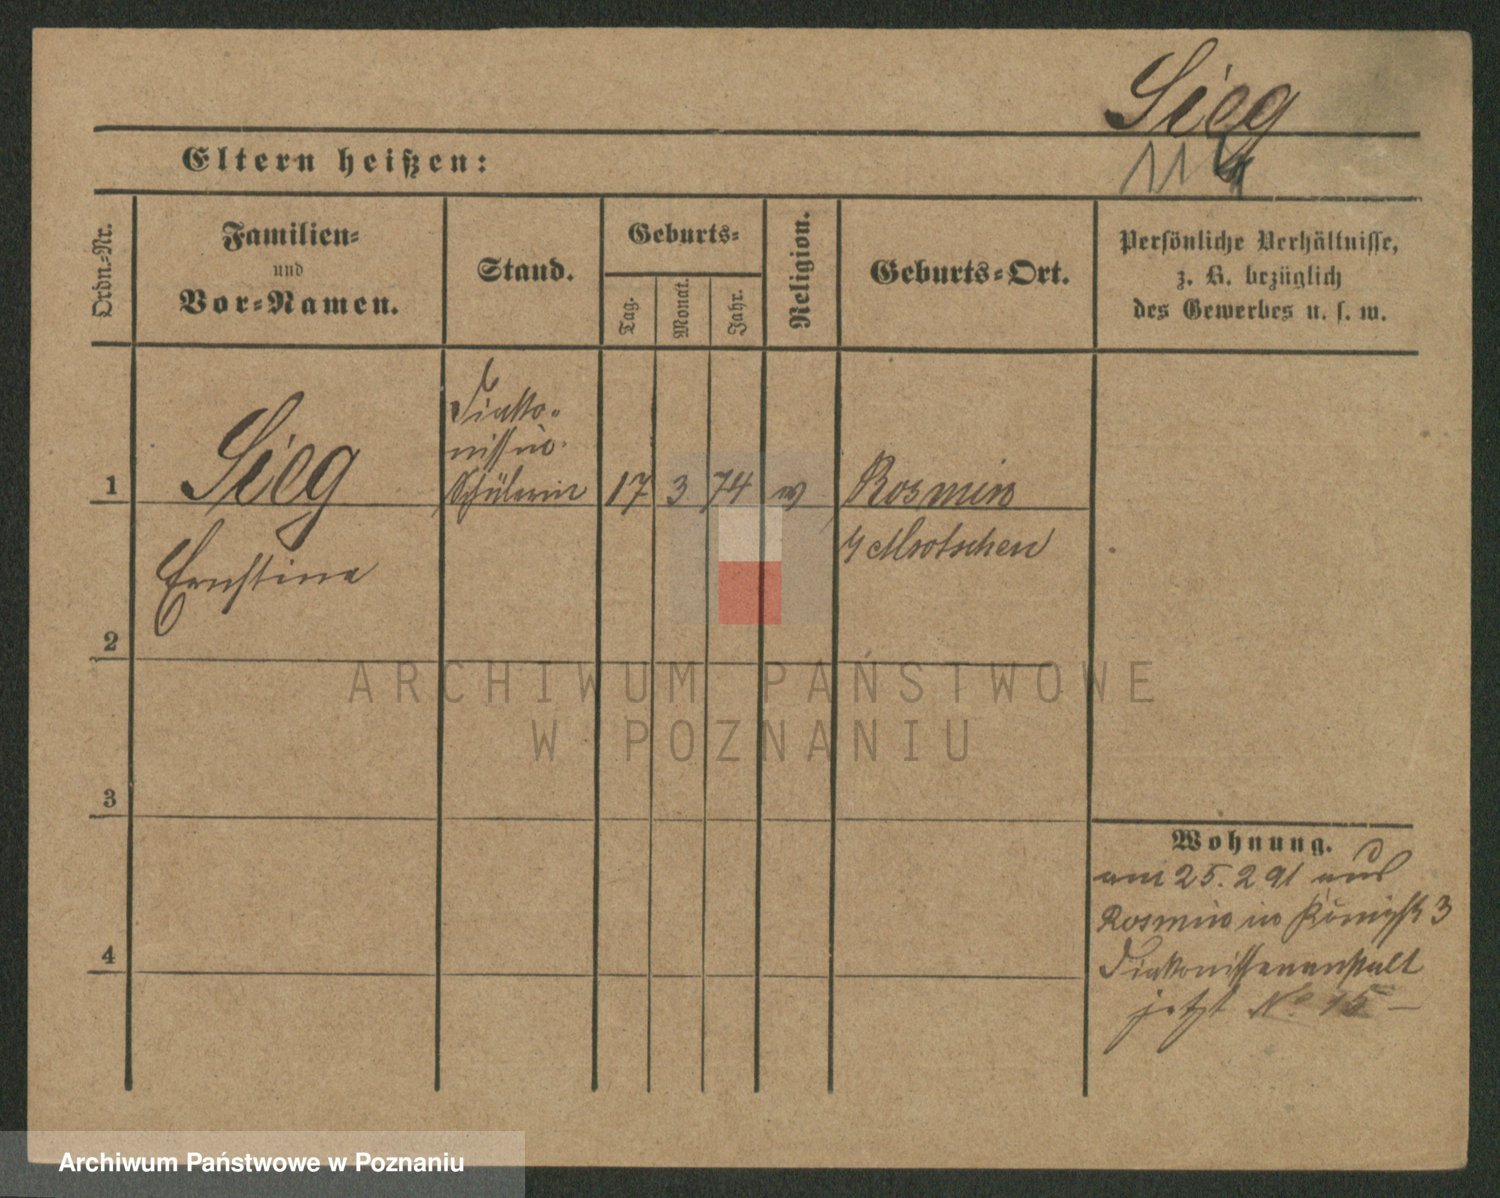 Sieg
Eltern heißen:
Ordn.-Nr.
Familien-
und
Vor-Namen.
Stand.
Geburts-
Tag.
Monat.
Jahr.
Religion.
Geburts-Ort.
Persönliche Verhältnisse,
z. B. bezüglich
des Gewerbes u. s. w.
1
Sieg
Ernstine
Diako-
nissin-
Schülerin
17 3 74
Rosmin
Mrotschen
2
3
4
Wohnung.
am 25.2 91 aus
Rosmin in Königstr 3
Diakonissenanstalt
jetzt No 15 –
ARCHIWUM PAŃSTWOWE
W POZNANIU
Archiwum Państwowe w Poznaniu